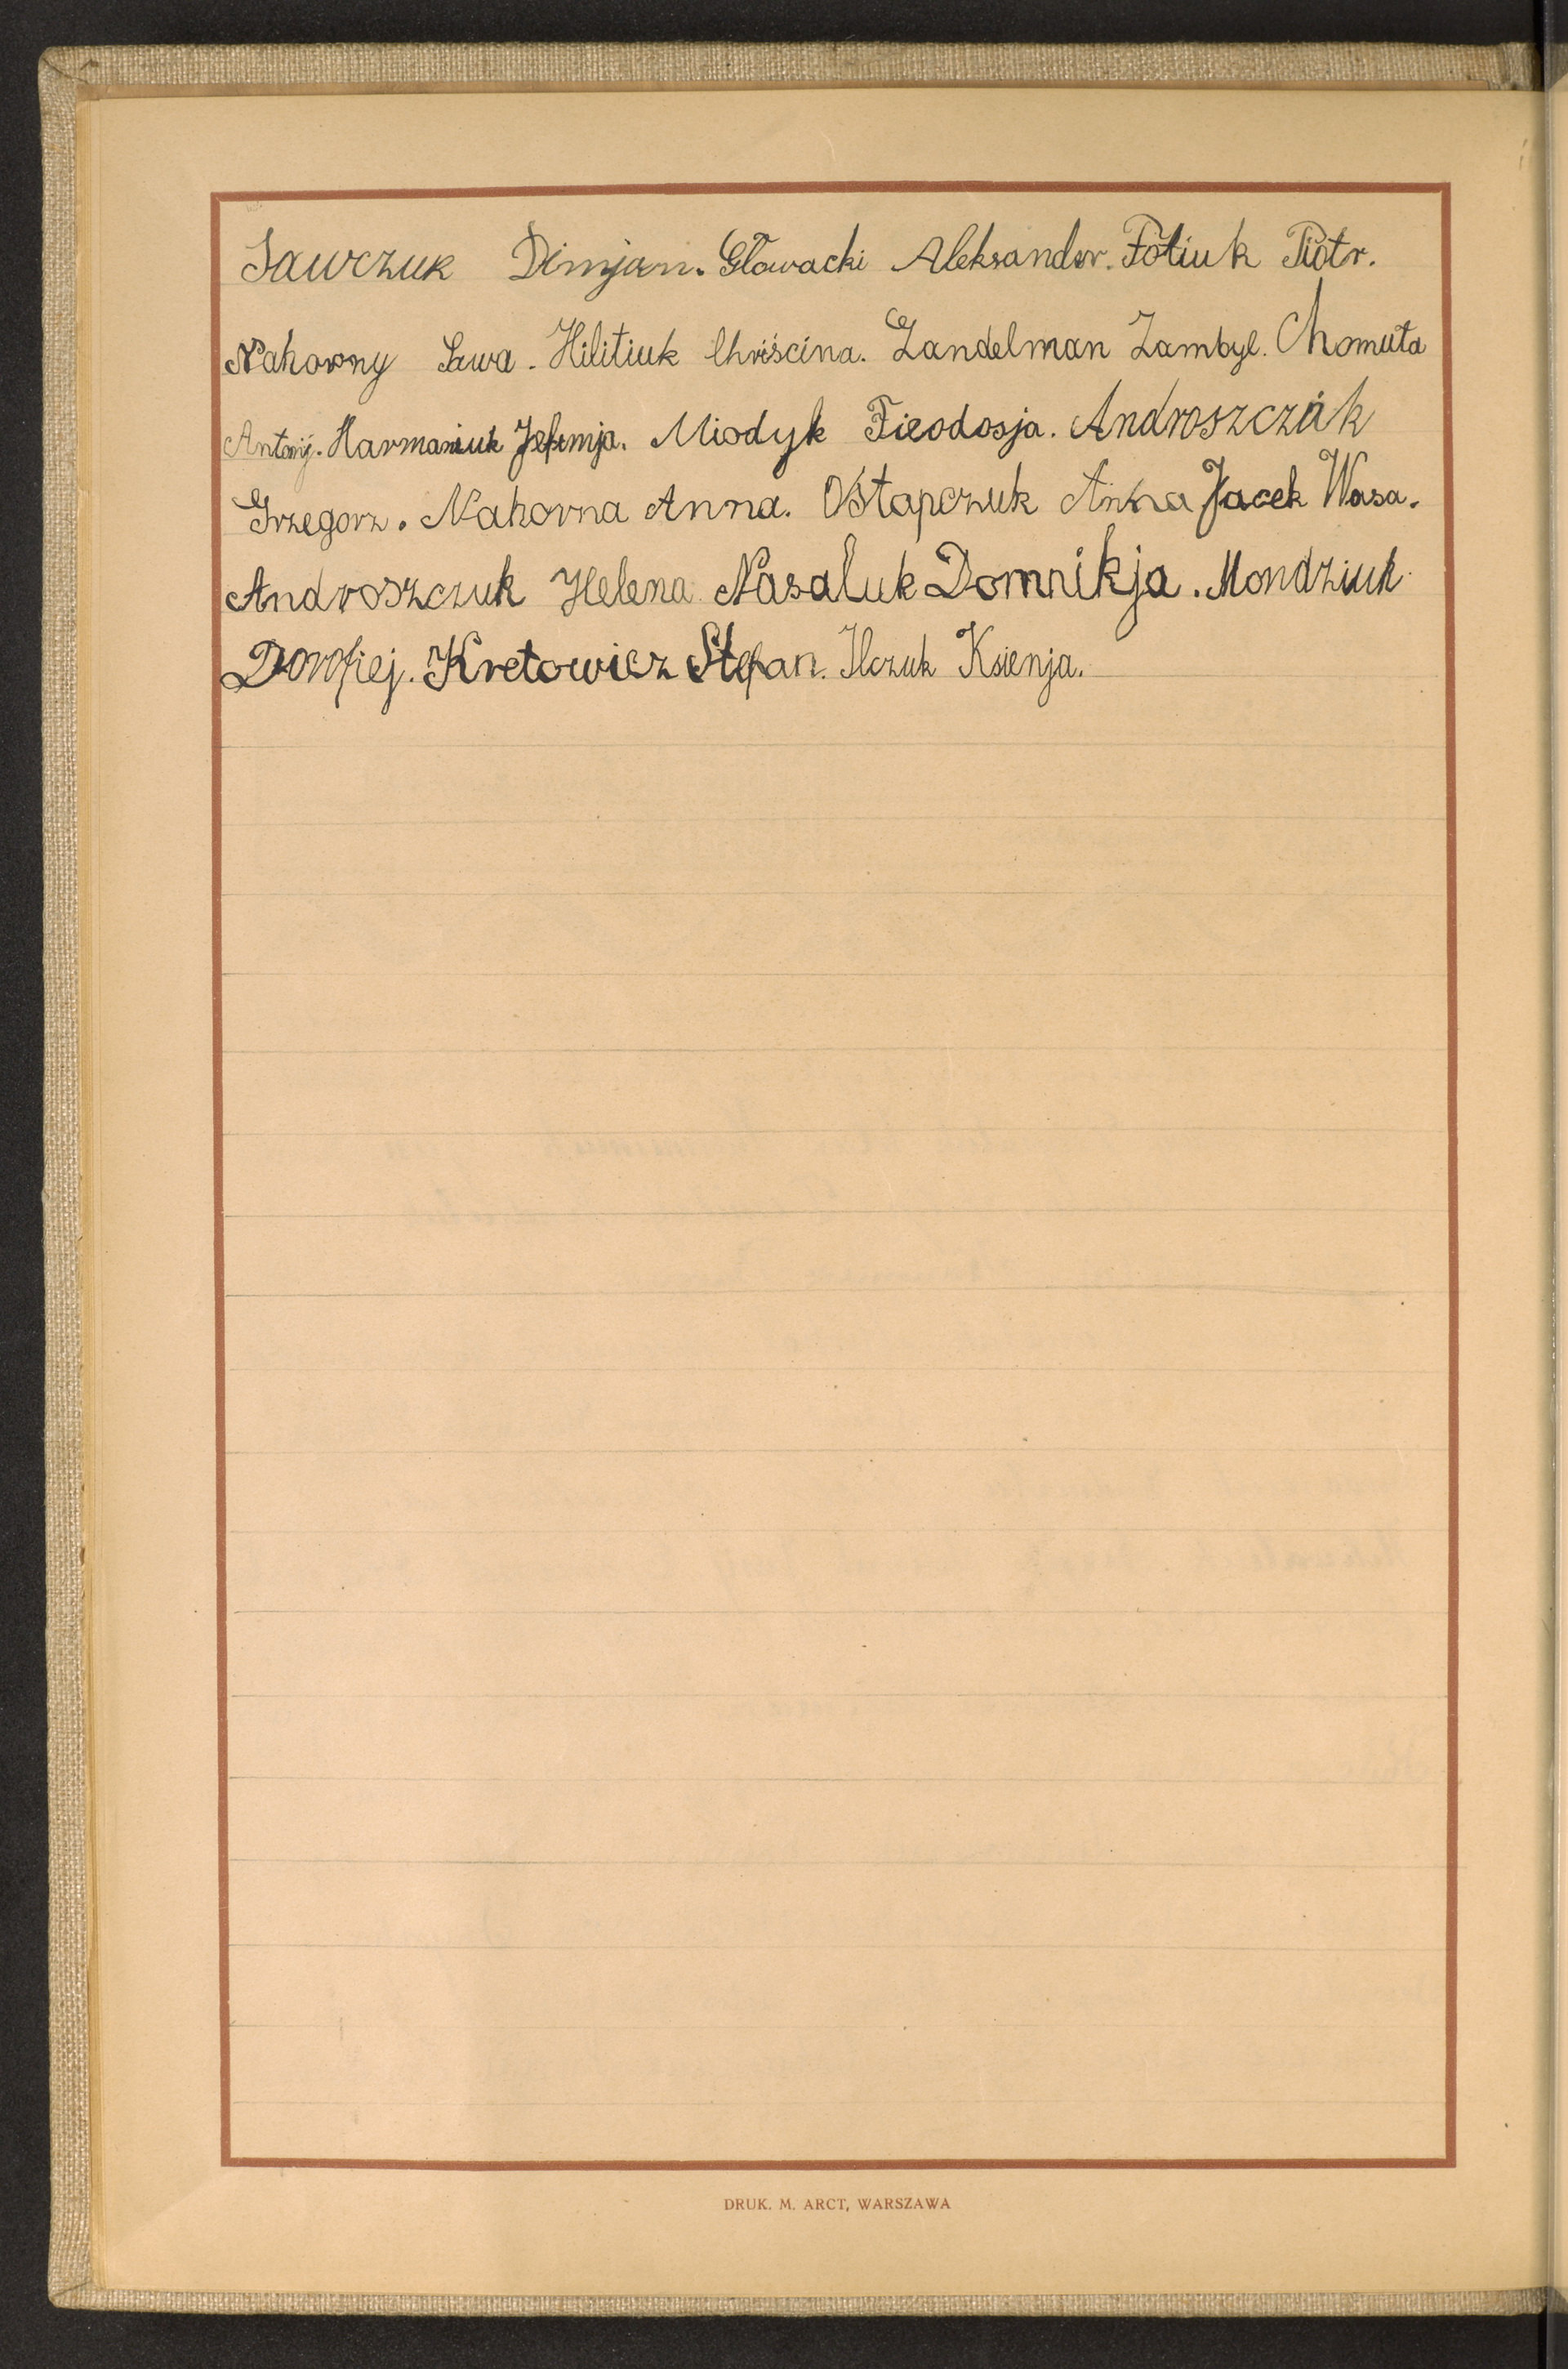 Sawczuk Dimjan. Głowacki Aleksander. Fotiuk Piotr.
Nahorny Sawa. Hilitiuk Chriścina. Zandelman Zambyl. Chomuta
Antonij. Harmaniuk Jefimja. Miodyk Fieodosja. Androszczuk
Grzegorz. Nahorna Anna. Ostapczuk Anna Jacek Wasa.
Androszczuk Helena Nasaluk Domnikja. Mondziuk
Dorofiej. Kretowicz Stefan. Ilczuk Ksienja.
DRUK. M. ARCT, WARSZAWA